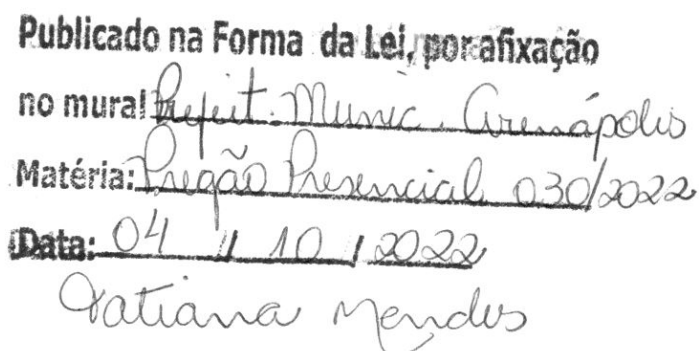 Publicado na Forma da Lei, por afixação
no mural Prefeit. Munic. Arenápolis
Matéria: Pregão Presencial 030/2022
Data: 04 / 10 / 2022
Tatiana Mendes